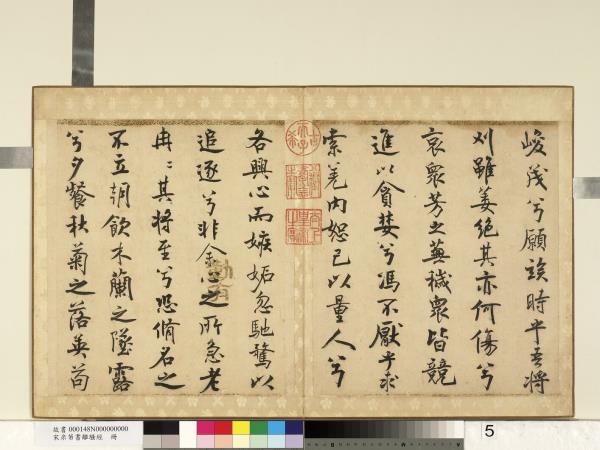 峻茂兮願竢時乎吾將
刈雖萎絕其亦何傷兮
哀眾芳之蕪穢眾皆競
進以貪婪兮馮不厭乎求
索羌內恕己以量人兮
各興心而嫉妬忽馳騖以
追逐兮非余心之所急老
冉〻其將至兮恐脩名之
不立朝飲木蘭之墜露
兮夕餐秋菊之落英苟
故書 000148N000000000
宋米芾書離騷經 冊
5